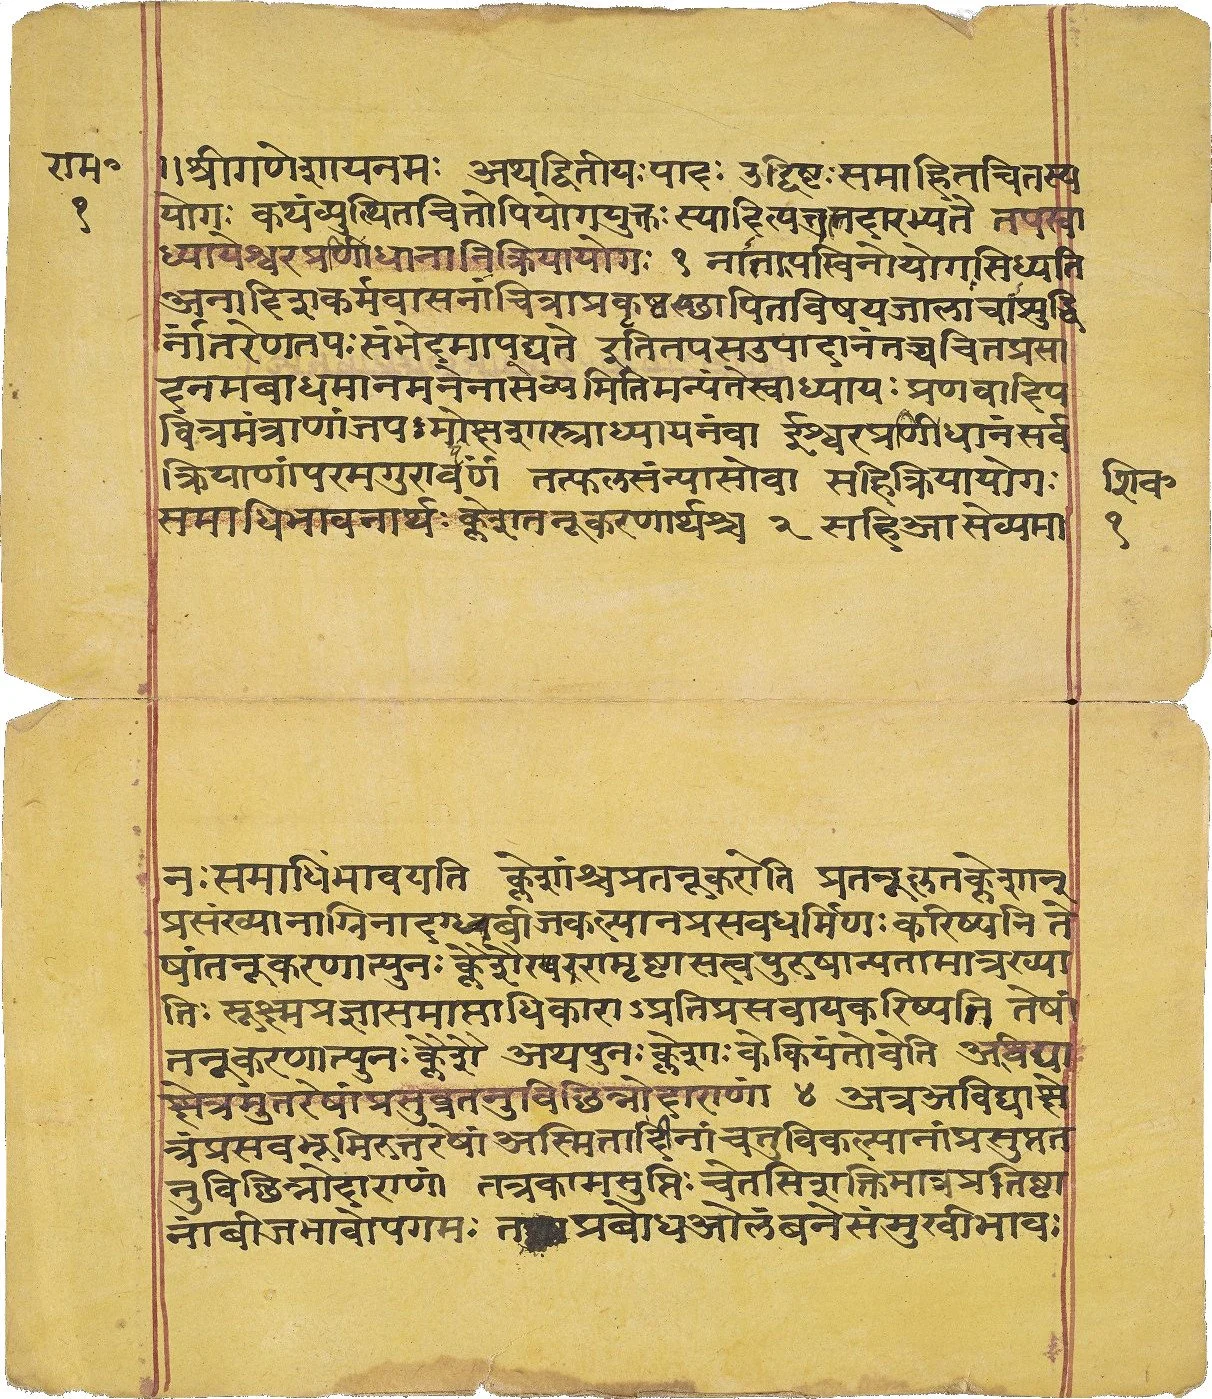 राम॰
१
॥श्रीगणेशायनमः अथद्वितीयःपादः उद्दिष्टःसमाहितचितस्य
योगः कथंव्युत्थितचित्तोपियोगयुक्तः स्यादित्येतत्तदारभ्यते तपस्वा
ध्यायेश्वरप्रणिधानानिक्रियायोगः १ नातापस्विनोयोगसिध्यति
अनादिशकर्मवासनाचित्राप्रकृष्ठस्छापितविषयजालाचासुद्धि
र्नांतरेणतपःसंभेदमापद्यते इतितपसउपादानंतच्चचितप्रसा
दनमबाधमानमनेनासेव्यमितिमन्यंतेस्वाध्यायः प्रणवादिप
वित्रमंत्राणांजपःमोक्षशास्त्राध्यायनंवा ईश्वरप्रणिधानंसर्व
क्रियाणांपरमगुरावर्पणं तत्फलसंन्यासोवा सहिक्रियायोगः
समाधिभावनार्थः क्लेशतनूकरणार्थश्च २ सहिआसेव्यमा
शिव॰
१
नःसमाधिंभावयति क्लेशांश्चप्रतनूकरोति प्रतनूकृतक्लेशान्
प्रसंख्यानाग्निनादग्धबीजकल्पानप्रसवधर्मिणः करिष्यनि ते
षांतनूकरणात्पुनः क्लेशैरपरामृष्टासत्वपुरुषान्यतामात्रख्या
तिः सूक्ष्मप्रज्ञासमाप्ताधिकाराऽप्रतिप्रसवायकरिष्यति तेषां
तनूकरणात्पुनः क्लेशै अथपुनः क्लेशाः केकियंतोवेति अविद्या
क्षेत्रमुतरेषांप्रसुप्ततनुविछिन्नोदाराणां ४ अत्रअविद्याक्षे
त्रंप्रसवभूमिरुत्तरेषां अस्मितादीनां चतुविकल्पानांप्रसुप्तत
नुविछिन्नोदाराणां तत्रकामसुप्तिः चेतसिशक्तिमात्रप्रतिष्टा
नांबीजभावोपगमः प्रबोधओलंबनेसंमुखीभावः